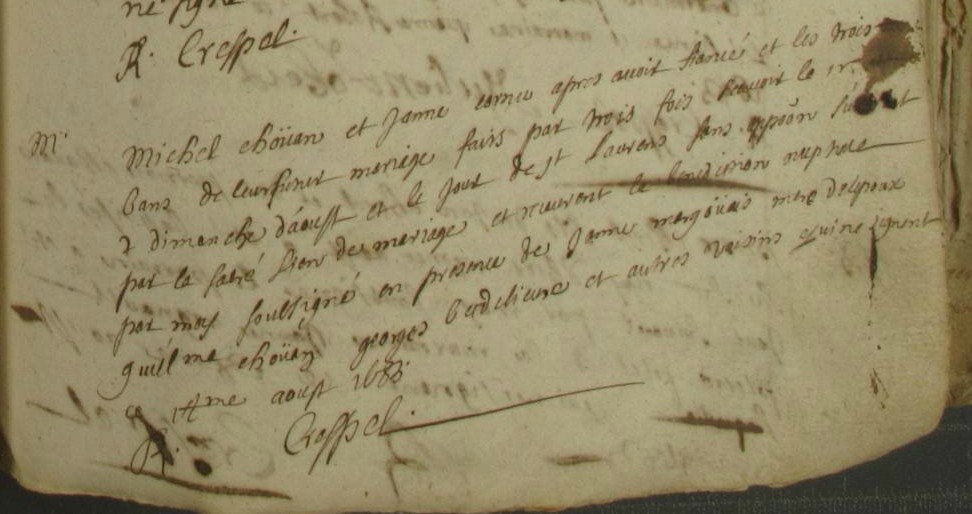 ne signe
R. Cressel.
M.
Michel choüan et Janne cornu apres avoir fiancé et les trois
bans de leur futur mariage faits par trois fois sçavoir le 1er
2 dimanche d'aoust et le jour de st Laurens sans oppoõn
par la sacré lien de mariage et receurent la benediction nuptale
par moy soubsigné en presence de Janne margoüais mere delepoux
guilme choüan georges et autres voisins qui ne signent
ce 14me aoust 1683
R. Cressel.